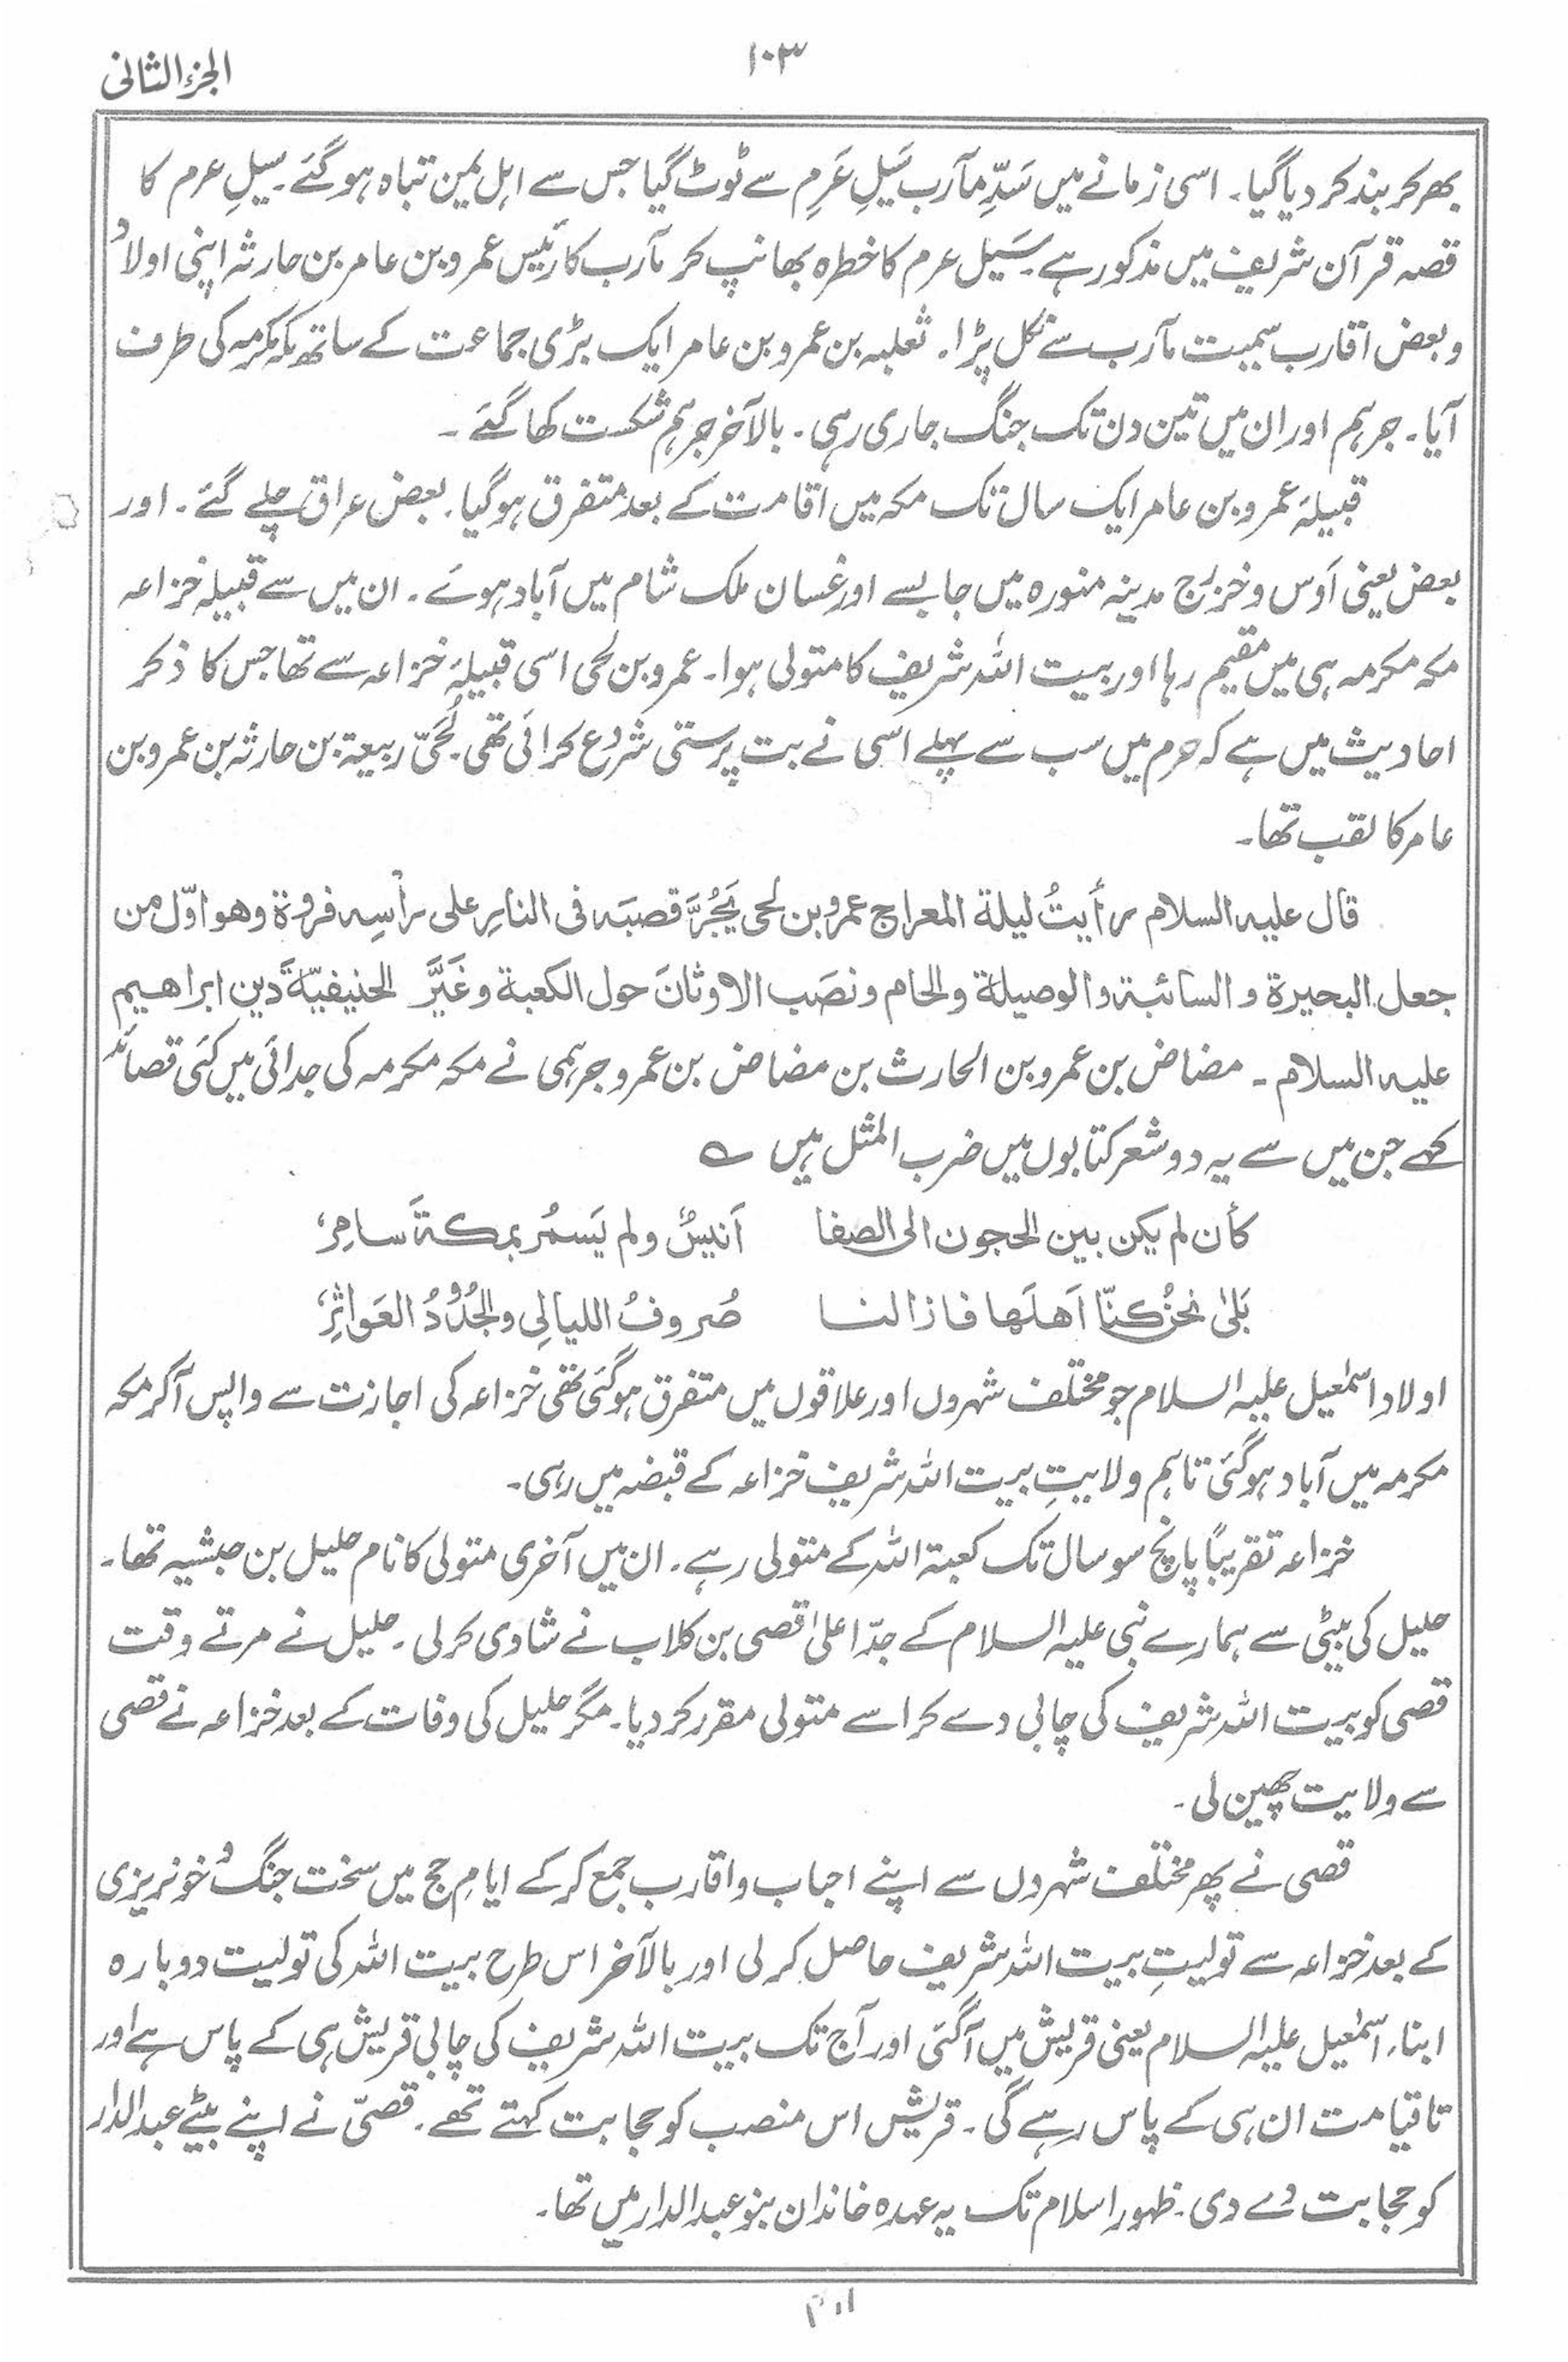 الجزء الثانی
۱۰۳
بھر کر بند کر دیا گیا۔ اسی زمانے میں سَدِّ مآرب سَیلِ عَرِم سے ٹوٹ گیا جس سے اہل یمن تباہ ہوگئے۔ سیلِ عرم کا
قصہ قرآن شریف میں مذکور ہے۔ سَیل عرم کا خطرہ بھانپ کر مآرب کا رئیس عمرو بن عامر بن حارثہ اپنی اولاد
و بعض اقارب سمیت مآرب سے نکل پڑا۔ ثعلبہ بن عمرو بن عامر ایک بڑی جماعت کے ساتھ مکہ مکرمہ کی طرف
آیا۔ جرہم اور ان میں تین دن تک جنگ جاری رہی۔ بالآخر جرہم شکست کھا گئے۔
قبیلۂ عمرو بن عامر ایک سال تک مکہ میں اقامت کے بعد متفرق ہوگیا۔ بعض عراق چلے گئے۔ اور
بعض یعنی اَوس و خزرج مدینہ منورہ میں جا بسے اور غسان ملک شام میں آباد ہوئے۔ ان میں سے قبیلہ خزاعہ
مکہ مکرمہ ہی میں مقیم رہا اور بیت اللہ شریف کا متولی ہوا۔ عمرو بن لحی اسی قبیلۂ خزاعہ سے تھا جس کا ذکر
احادیث میں ہے کہ حرم میں سب سے پہلے اسی نے بت پرستی شروع کرائی تھی۔ لُحَیّ ربیعۃ بن حارثہ بن عمرو بن
عامر کا لقب تھا۔
قال علیہ السلام رأیتُ لیلة المعراج عمرو بن لحی یَجُرَّ قصبَہ فی النارِ علی رأسِہ فروة وھو اوّل من
جعل البحیرة و السائبة و الوصیلة والحام ونصَب الاوثانَ حول الکعبة وغَیَّرَ الحنیفیّةَ دین ابراھیم
علیہ السلام ۔ مضاض بن عمرو بن الحارث بن مضاض بن عمرو جرہمی نے مکہ مکرمہ کی جدائی میں کئی قصائد
کہے جن میں سے یہ دو شعر کتابوں میں ضرب المثل ہیں ؎
کأن لم یکن بین الحجون الی الصفا اَنیسٌ ولم یَسمُر بمکةَ سامِرُ
بَلیٰ نحنُ کنّا اَھلَھا فازالنا صُروفُ اللیالِی والجُدُودُ العَواثِرُ
اولاد اسمٰعیل علیہ السلام جو مختلف شہروں اور علاقوں میں متفرق ہوگئی تھی خزاعہ کی اجازت سے واپس آکر مکہ
مکرمہ میں آباد ہوگئی تاہم ولایتِ بیت اللہ شریف خزاعہ کے قبضہ میں رہی۔
خزاعہ تقریبًا پانچ سو سال تک کعبۃ اللہ کے متولی رہے۔ ان میں آخری متولی کا نام حلیل بن حبشیہ تھا۔
حلیل کی بیٹی سے ہمارے نبی علیہ السلام کے جدّ اعلیٰ قصی بن کلاب نے شادی کرلی۔ حلیل نے مرتے وقت
قصی کو بیت اللہ شریف کی چابی دے کر اسے متولی مقرر کر دیا۔ مگر حلیل کی وفات کے بعد خزاعہ نے قصی
سے ولایت چھین لی۔
قصی نے پھر مختلف شہروں سے اپنے احباب و اقارب جمع کر کے ایامِ حج میں سخت جنگ و خونریزی
کے بعد خزاعہ سے تولیتِ بیت اللہ شریف حاصل کر لی اور بالآخر اس طرح بیت اللہ کی تولیت دوبارہ
ابناء اسمٰعیل علیہ السلام یعنی قریش میں آگئی اور آج تک بیت اللہ شریف کی چابی قریش ہی کے پاس ہے اور
تا قیامت ان ہی کے پاس رہے گی۔ قریش اس منصب کو حجابت کہتے تھے۔ قصیّ نے اپنے بیٹے عبدالدار
کو حجابت دے دی۔ ظہور اسلام تک یہ عہدہ خاندان بنو عبدالدار میں تھا۔